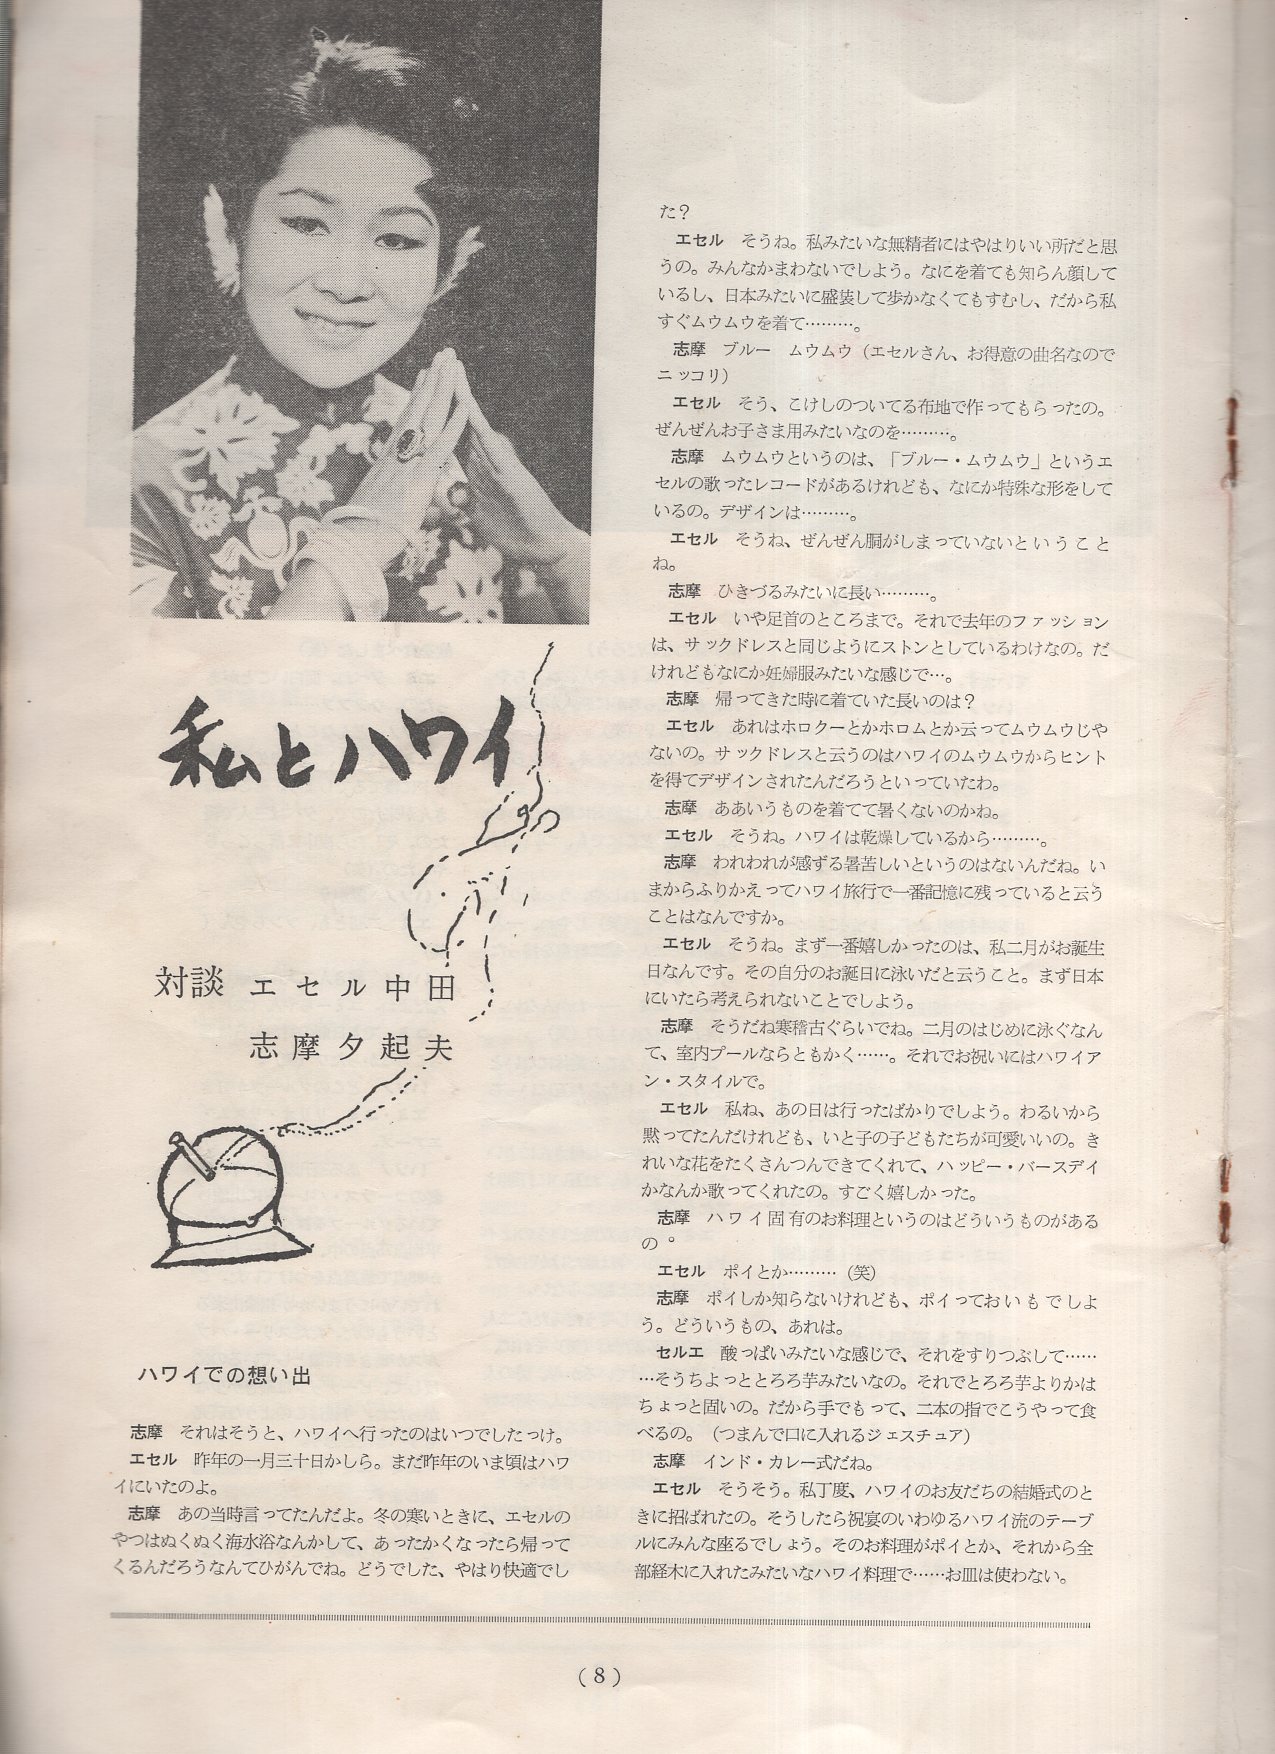 私とハワイ
対談 エセル中田
志摩夕起夫
ハワイでの想い出
志摩 それはそうと、ハワイへ行ったのはいつでしたっけ。
エセル 昨年の一月三十日かしら。まだ昨年のいま頃はハワ
イにいたのよ。
志摩 あの当時言ってたんだよ。冬の寒いときに、エセルの
やつはぬくぬく海水浴なんかして、あったかくなったら帰って
くるんだろうなんてひがんでね。どうでした、やはり快適でし
た？
エセル そうね。私みたいな無精者にはやはりいい所だと思
うの。みんなかまわないでしょう。なにを着ても知らん顔して
いるし、日本みたいに盛装して歩かなくてもすむし、だから私
すぐムウムウを着て………。
志摩 ブルー ムウムウ（エセルさん、お得意の曲名なので
ニッコリ）
エセル そう、こけしのついてる布地で作ってもらったの。
ぜんぜんお子さま用みたいなのを………。
志摩 ムウムウというのは、「ブルー・ムウムウ」というエ
セルの歌ったレコードがあるけれども、なにか特殊な形をして
いるの。デザインは………。
エセル そうね、ぜんぜん胴がしまっていないということ
ね。
志摩 ひきづるみたいに長い………。
エセル いや足首のところまで。それで去年のファッション
は、サックドレスと同じようにストンとしているわけなの。だ
けれどもなにか妊婦服みたいな感じで…。
志摩 帰ってきた時に着ていた長いのは？
エセル あれはホロクーとかホロムとか云ってムウムウじゃ
ないの。サックドレスと云うのはハワイのムウムウからヒント
を得てデザインされたんだろうといっていたわ。
志摩 ああいうものを着てて暑くないのかね。
エセル そうね。ハワイは乾燥しているから………。
志摩 われわれが感ずる暑苦しいというのはないんだね。い
まからふりかえってハワイ旅行で一番記憶に残っていると云う
ことはなんですか。
エセル そうね。まず一番嬉しかったのは、私二月がお誕生
日なんです。その自分のお誕日に泳いだと云うこと。まず日本
にいたら考えられないことでしよう。
志摩 そうだね寒稽古ぐらいでね。二月のはじめに泳ぐなん
て、室内プールならともかく……。それでお祝いにはハワイア
ン・スタイルで。
エセル 私ね、あの日は行ったばかりでしよう。わるいから
黙ってたんだけれども、いと子の子どもたちが可愛いいの。き
れいな花をたくさんつんできてくれて、ハッピー・バースデイ
かなんか歌ってくれたの。すごく嬉しかった。
志摩 ハワイ固有のお料理というのはどういうものがある
の。
エセル ポイとか………（笑）
志摩 ポイしか知らないけれども、ポイっておいもでしょ
う。どういうもの、あれは。
セルエ 酸っぱいみたいな感じで、それをすりつぶして……
…そうちよっととろろ芋みたいなの。それでとろろ芋よりかは
ちょっと固いの。だから手でもって、二本の指でこうやって食
べるの。（つまんで口に入れるジェスチュア）
志摩 インド・カレー式だね。
エセル そうそう。私丁度、ハワイのお友だちの結婚式のと
きに招ばれたの。そうしたら祝宴のいわゆるハワイ流のテーブ
ルにみんな座るでしょう。そのお料理がポイとか、それから全
部経木に入れたみたいなハワイ料理で……お皿は使わない。
（8）